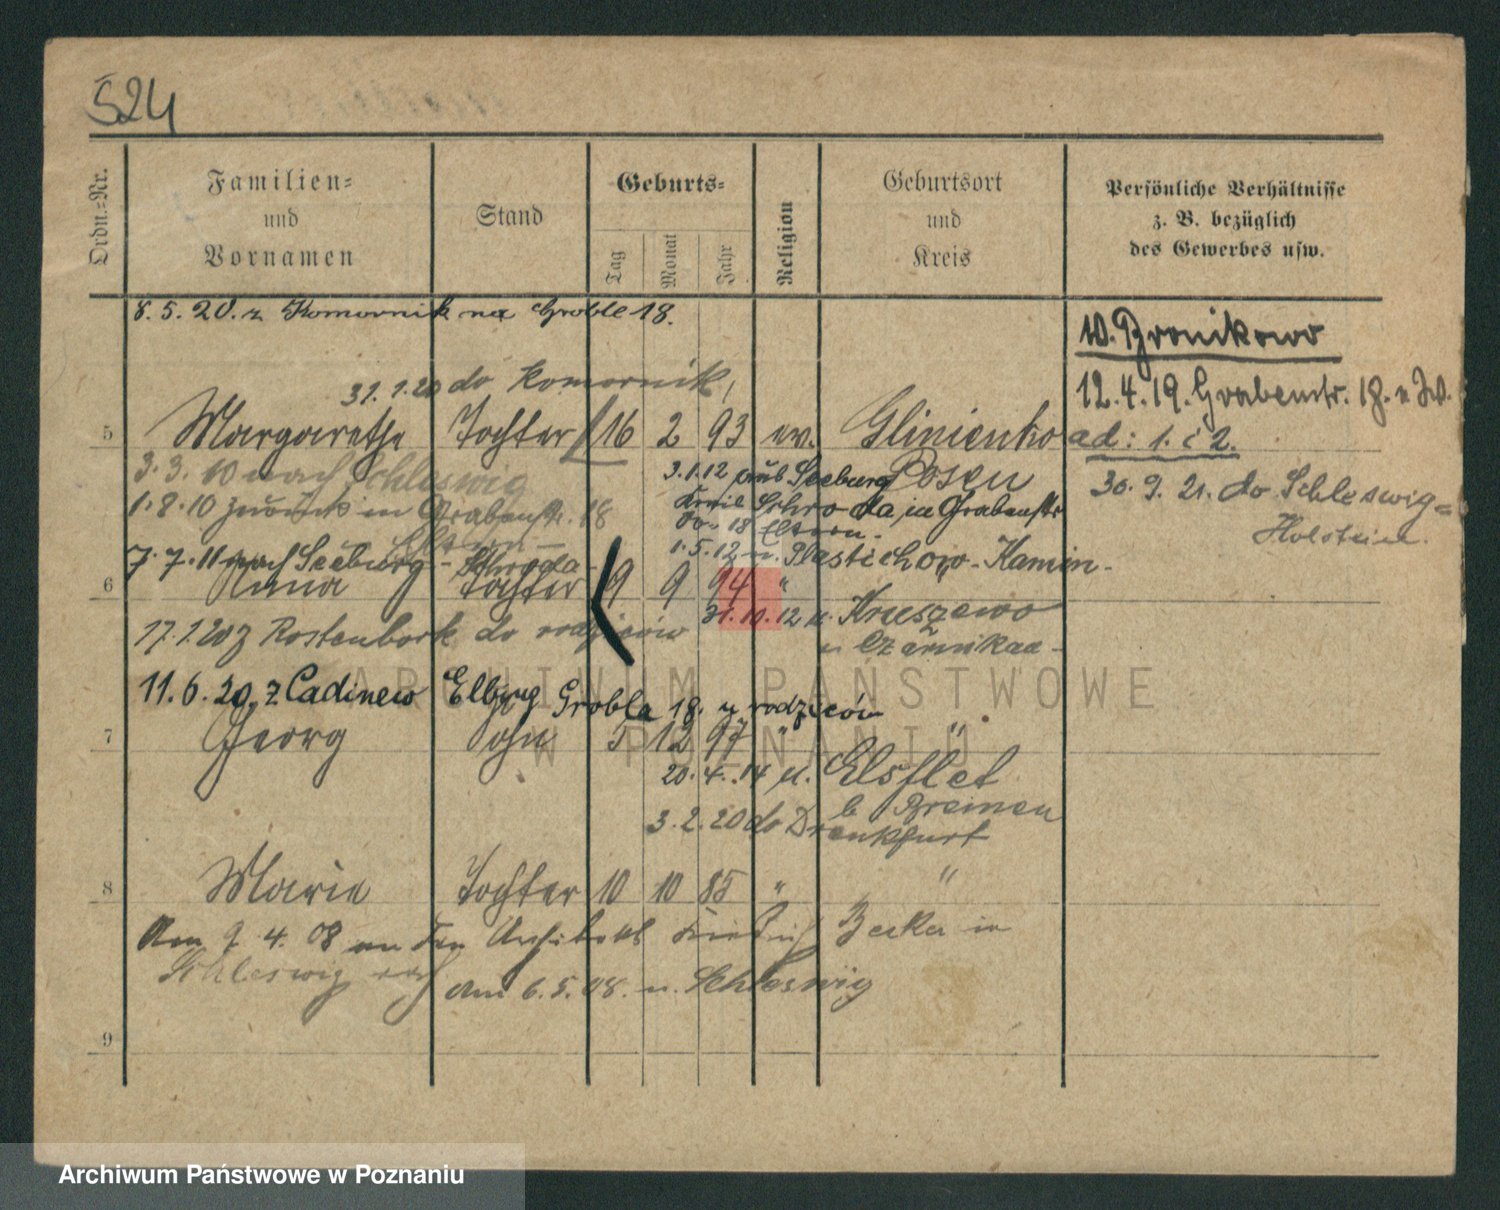 524
Ordn.=Nr.
Familien=
und
Vornamen
Stand
Geburts=
Tag
Monat
Jahr
Religion
Geburtsort
und
Kreis
Persönliche Verhältnisse
z. B. bezüglich
des Gewerbes usw.
8. 5. 20. z Komornik na Groble 18.
w. Bronikowo
31. 1. 20 do Komornik,
12. 4. 19. Grabenstr. 18.
5 Margarethe Tochter 16 2 93 ev. Glinienko
ad: 1. i 2.
3. 3. 10 nach Schleswig
3.1.12 aus Seeburg Posen
30. 9. 21. do Schleswig=
Holstein.
1. 8. 10 zurück in Grabenstr. 18
Kreis Schroda in Grabenstr
18 Eltern.
Eltern
7. 7. 11 nach Seeburg - Schroda -
1. 5. 12 n. Plastichow - Kamin -
6 Anna Tochter 9 9 94 "
31. 10. 12 n. Kruszewo
17. 1. 20 z Rostenbork do rodziców
n Czarnikau -
11. 6. 20. z Cadinew Elbing Grobla 18. u rodziców
7 Georg Sohn 5 12 97 " "
20. 4. 14 n. Elsflet
b Bremen
3. 2. 20 do Drenkfurt
8 Marie Tochter 10 10 85 " "
Am 9. 4. 08 an den Architekt Friedrich Becker in
Schleswig
am 6. 5. 08. n. Schleswig
9
ARCHIWUM PAŃSTWOWE
W POZNANIU
Archiwum Państwowe w Poznaniu